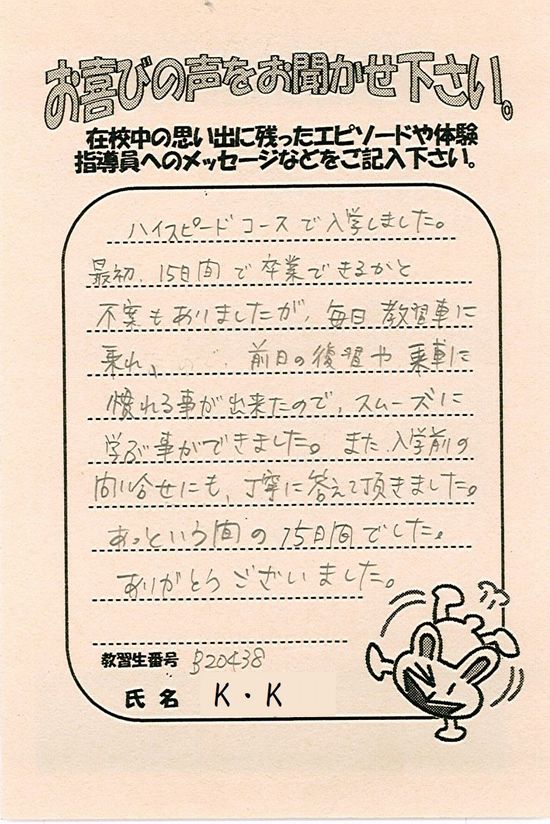 お喜びの声をお聞かせ下さい。
在校中の思い出に残ったエピソードや体験
指導員へのメッセージなどをご記入下さい。
ハイスピードコースで入学しました。
最初、15日間で卒業できるかと
不案もありましたが、毎日教習車に
乗れ、前日の復習や乗車に
慣れる事が出来たので、スムーズに
学ぶ事ができました。また、入学前の
問い合せにも、丁寧に答えて頂きました。
あっという間の15日間でした。
ありがとうございました。
教習生番号 B20438
氏名 K・K